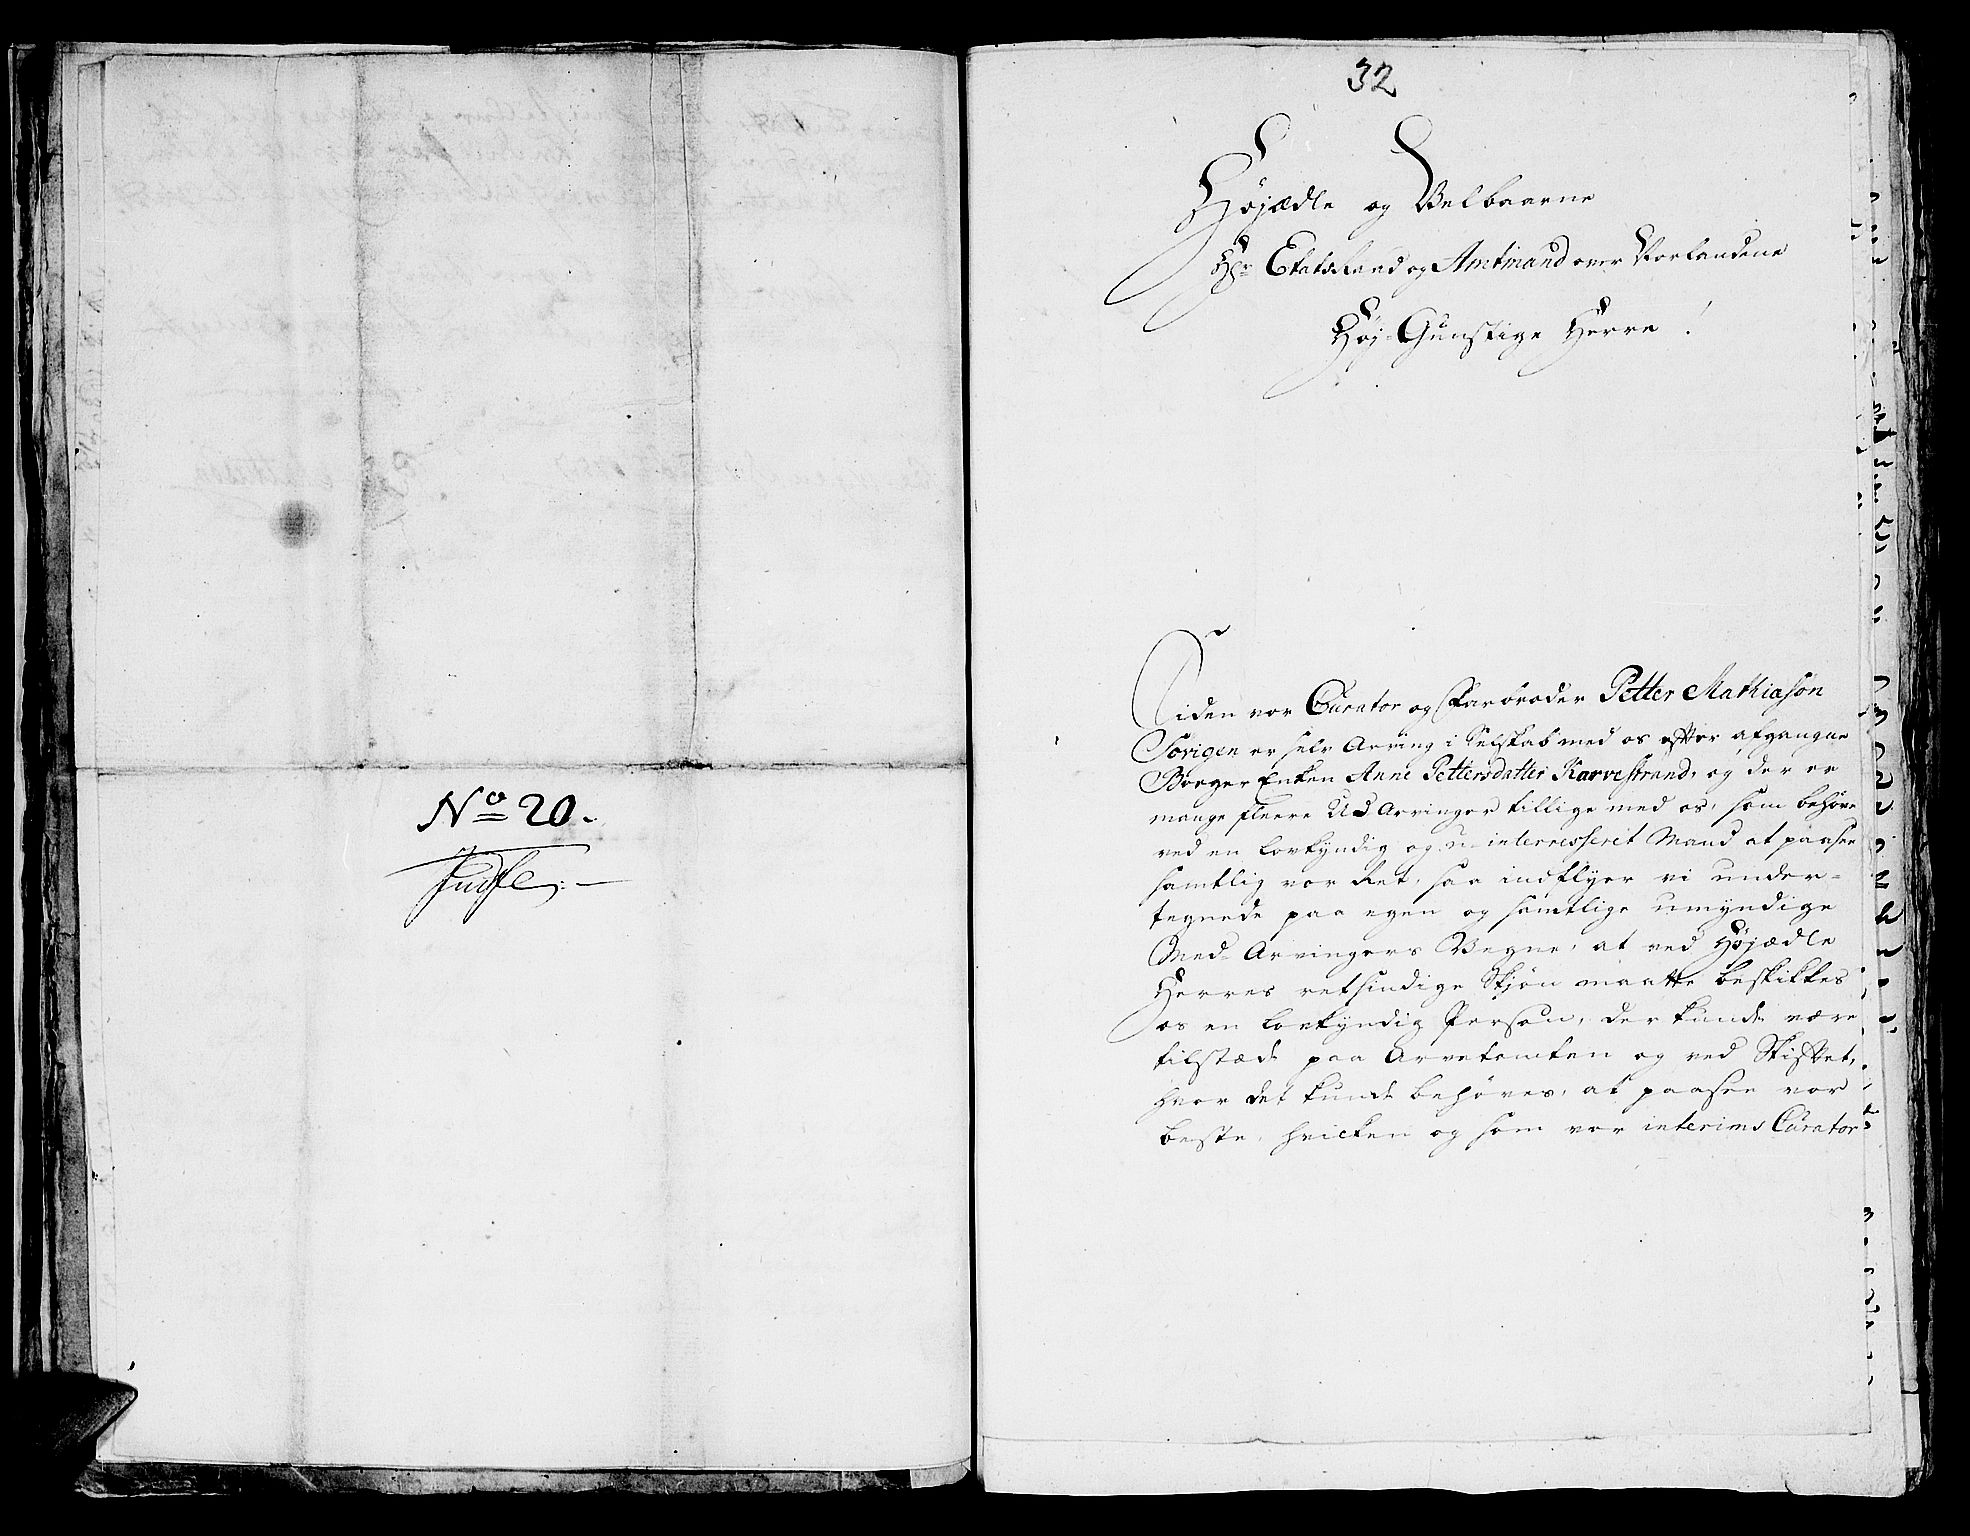 No 20.
32
Højædle og Velbaarne
Hr Etatsraad og Amtmand over Norlandene
Høj-Gunstige Herre!
Siden vor Curator og Farbroder Petter Mathiason
Sørigen er selv Arving i Selskab med os efter afgangne
Borger Enken Anne Pettersdatter Karvestrand, og der er
mange fleere Ud Arvinger tillige med os, som behøve
ved en lovkyndig og u-interresseret Mand at paasee
samtlig vor Ret, saa indflyer vi under-
tegnede paa egen og samtlige umyndige
Med-Arvingers Vegne, at ved Højædle
Herres retsindige Skjøn maatte beskikkes
os en lovkyndig Person, der kunde være
tilstæde paa Arvetomten og ved Skiftet,
hvor det kunde behøves, at paasee vor
beste, hvilken og som vor interims Curator